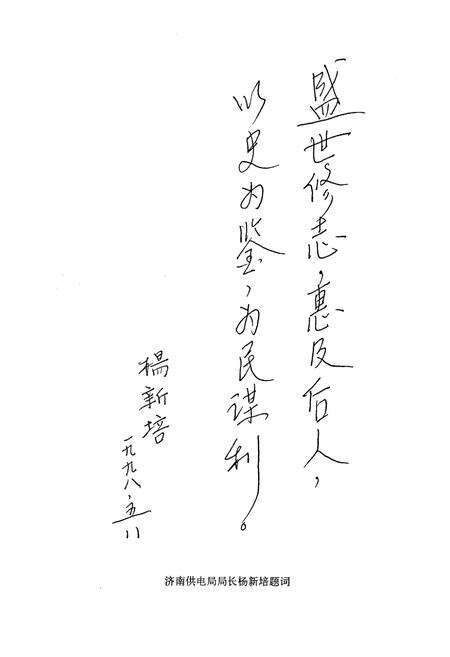 盛世修志，惠及后人，
以史为鉴，为民谋利。
楊新培
一九九八.五.八
济南供电局局长杨新培题词